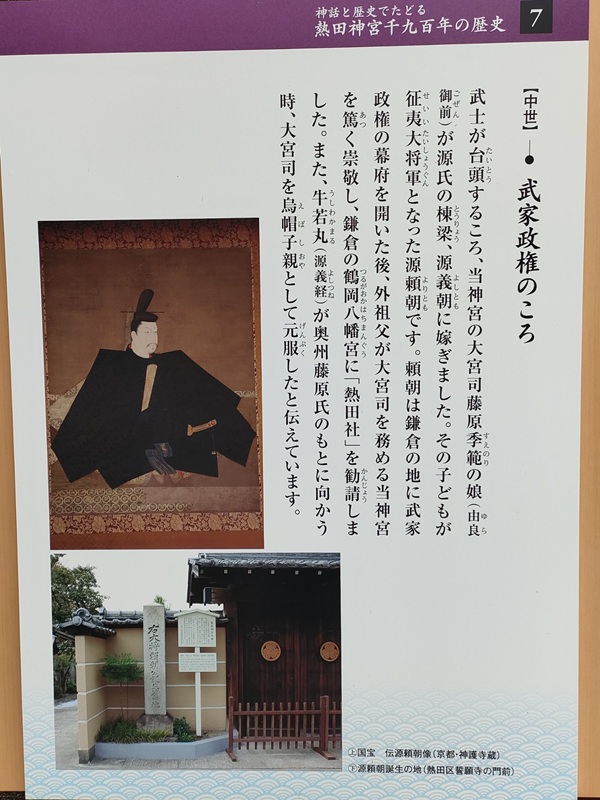 神話と歴史でたどる
熱田神宮千九百年の歴史
7
【中世】―● 武家政権のころ
武士が台頭するころ、当神宮の大宮司藤原季範の娘(由良
御前)が源氏の棟梁、源義朝に嫁ぎました。その子どもが
征夷大将軍となった源頼朝です。頼朝は鎌倉の地に武家
政権の幕府を開いた後、外祖父が大宮司を務める当神宮
を篤く崇敬し、鎌倉の鶴岡八幡宮に「熱田社」を勧請しま
した。また、牛若丸(源義経)が奥州藤原氏のもとに向かう
時、大宮司を烏帽子親として元服したと伝えています。
㊤国宝 伝源頼朝像(京都・神護寺蔵)
㊦源頼朝誕生の地(熱田区誓願寺の門前)